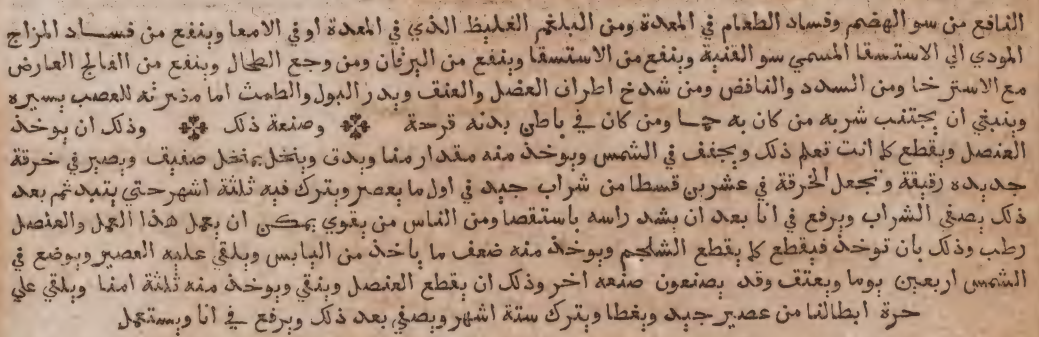 النافع من سو الهضم وفساد الطعام في المعدة ومن البلغم الغليظ الذي في المعدة او في الامعا وينفع من فساد المزاج
المودي الي الاستسقا المسمي سو القنية وينفع من الاستسقا وينفع من اليرقان ومن وجع الطحال وينفع من الفالج العارض
مع الاسترخا ومن السدد والنافض ومن شدخ اطراف العضل والعنف ويدر البول والطمث اما مضرته للعصب يسيره
وينبغي ان يجتنب شربه من كان به حما ومن كان في باطن بدنه قرحة وصنعة ذلك وذلك ان يوخذ
العنصل ويقطع كما انت تعلم ذلك ويجفف في الشمس ويوخذ منه مقدار منا ويدق وينخل بمنخل صفيق ويصير في خرقة
جديده رقيقة وتجعل الخرقة في عشرين قسطا من شراب جيد في اول ما يعصر ويترك فيه ثلثة اشهر حتي يتبد ثم بعد
ذلك يصفي الشراب ويرفع في انا بعد ان يشد راسه باستقصا ومن الناس من يقوي يمكن ان يعمل هذا العمل والعنصل
رطب وذلك بان توخذ فيقطع كما يقطع الشلجم ويوخذ منه ضعف ما ياخذ من اليابس ويلقي عليه العصير ويوضع في
الشمس اربعين يوما ويعتف وقد يصنعون صنعه اخر وذلك ان يقطع العنصل وينقي ويوخذ منه ثلثة امنا ويلقي علي
حرة ابطالنا من عصير جيد ويغطا ويترك ستة اشهر ويصفي بعد ذلك ويرفع في انا ويستعمل